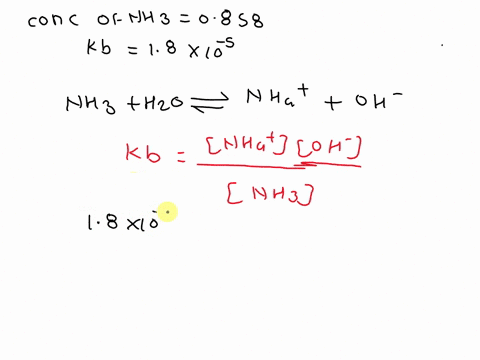 conc of NH3 = 0.858
Kb = 1.8 × 10⁻⁵
NH3 + H2O ⇌ NH4⁺ + OH⁻
Kb = [NH4⁺] [OH⁻] / [NH3]
1.8 × 10⁻